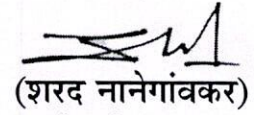 (शरद नानेगांवकर)